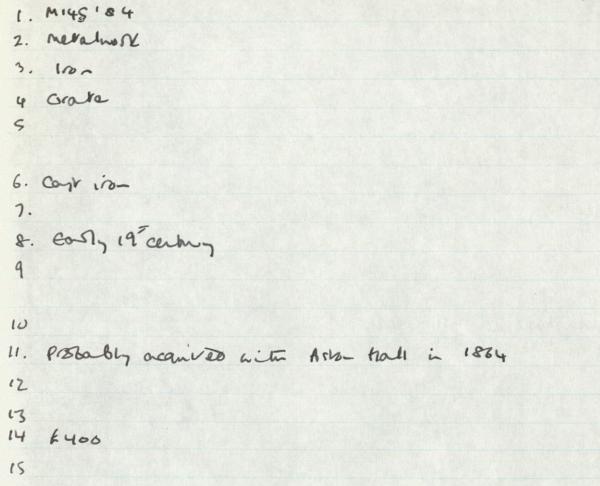 1. M145'84
2. Metalwork
3. Iron
4 Grate
5
6. Cast iron
7.
8. Early 19th century
9
10
11. Probably acquired with Aston Hall in 1864
12
13
14 £400
15